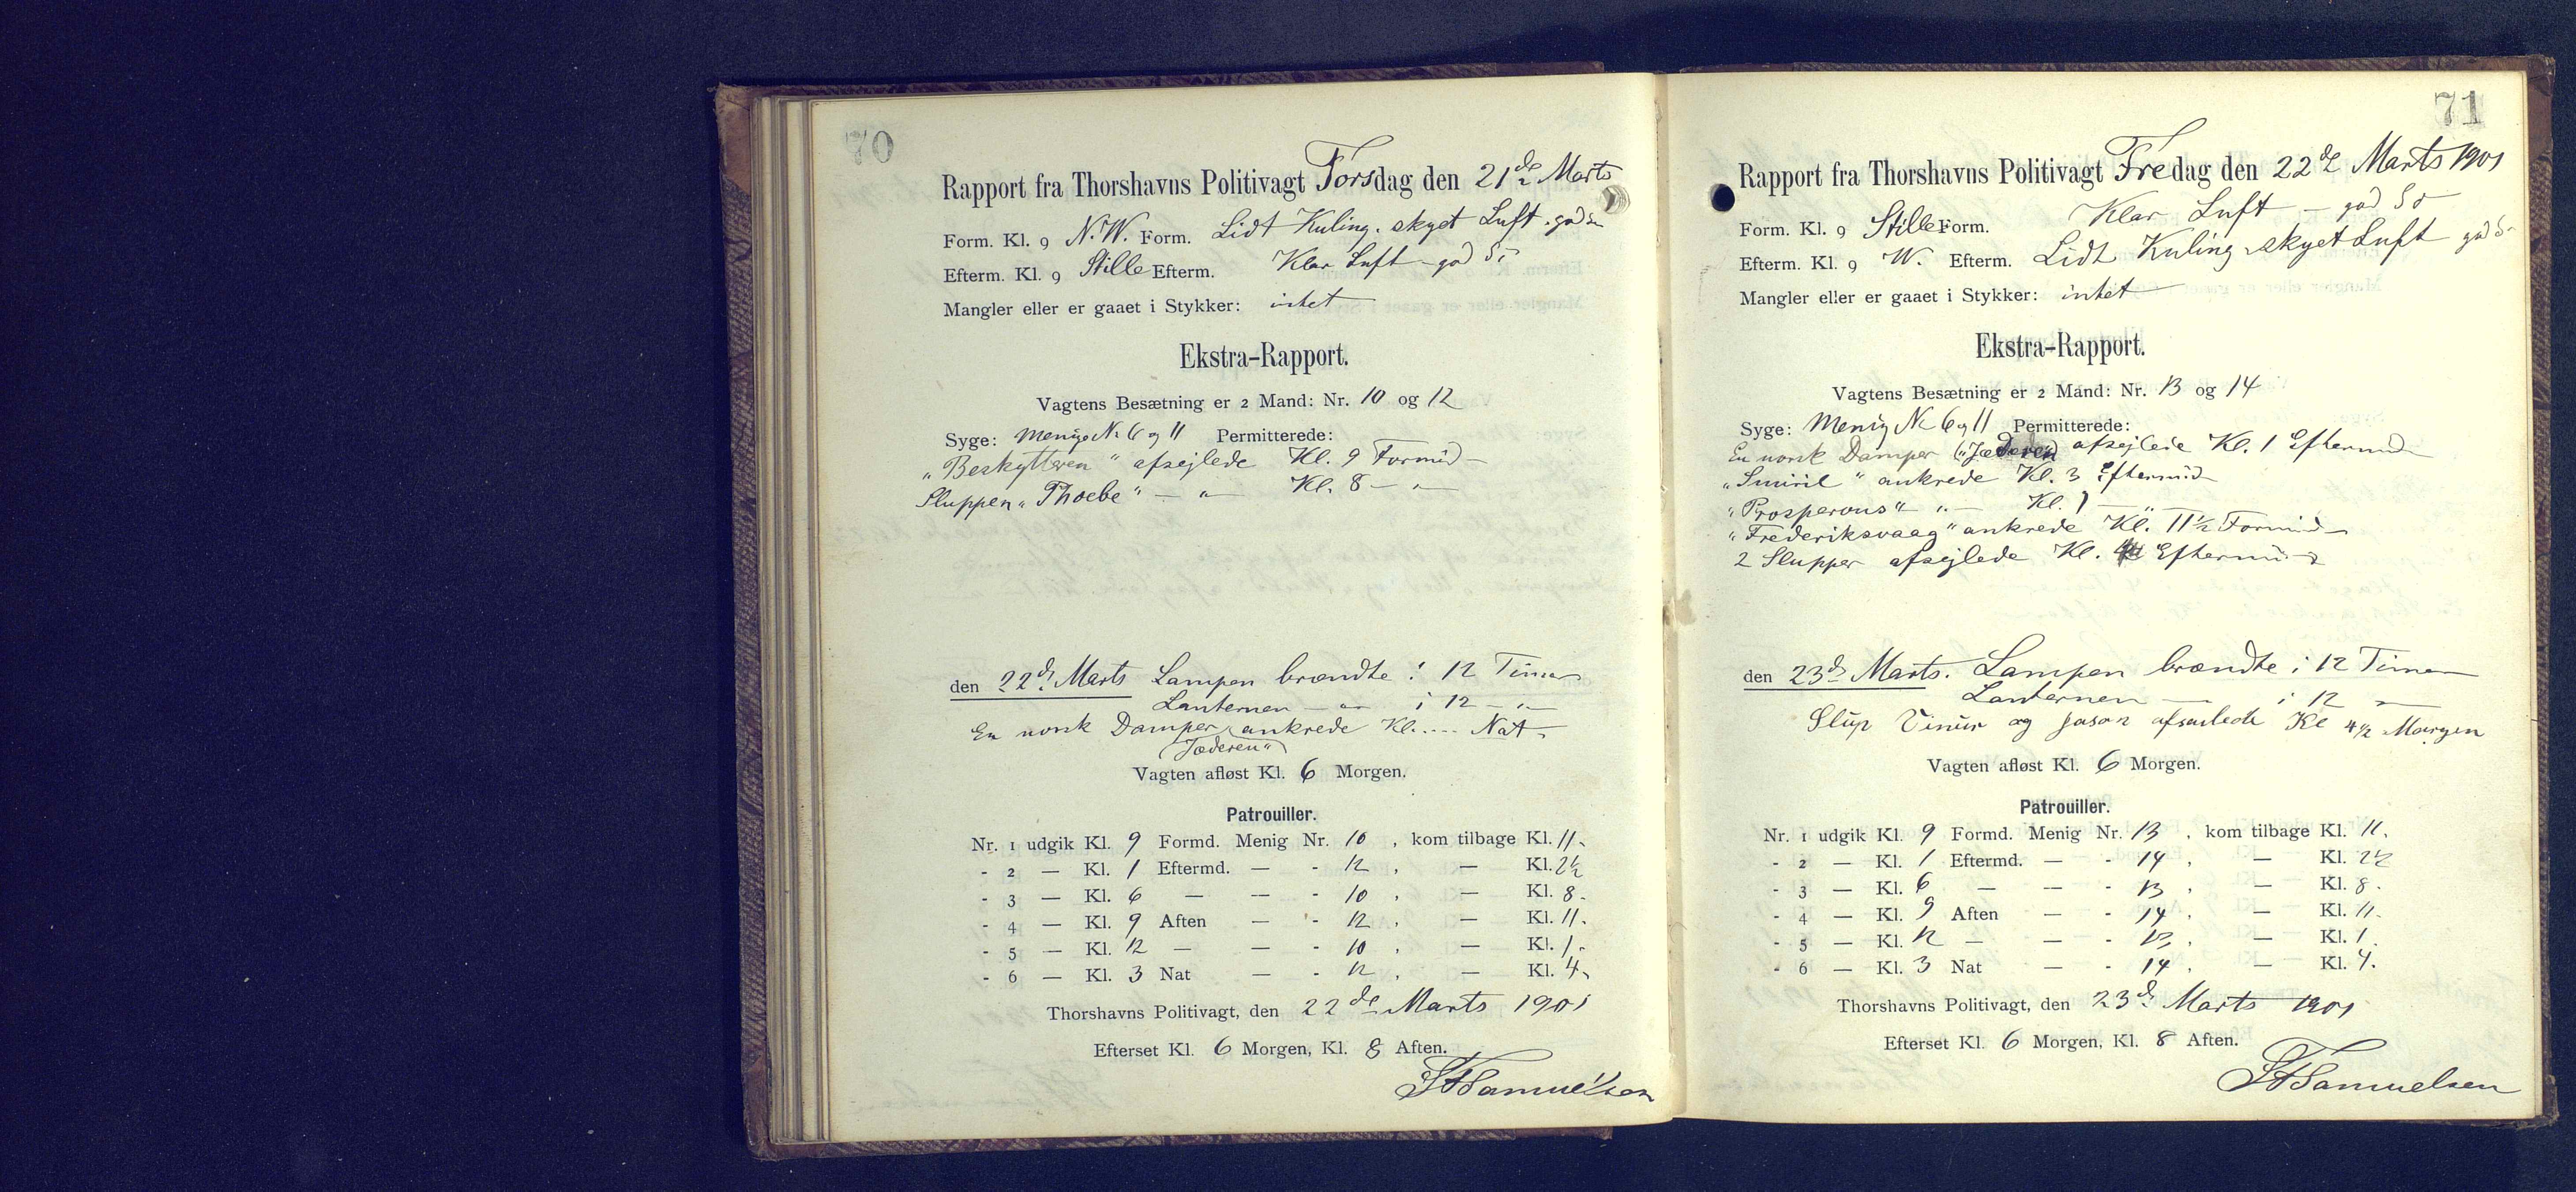 70
Rapport fra Thorshavns Politivagt Torsdag den 21de Marts
Form. Kl. 9 N.W. Form. Lidt Kuling. skyet Luft. god So
Efterm. Kl. 9 Stille Efterm. Klar Luft - god So
Mangler eller er gaaet i Stykker: intet
Ekstra-Rapport.
Vagtens Besætning er 2 Mand: Nr. 10 og 12
Syge: Menig Nr 6 og 11 Permitterede:
"Beskytteren" afsejlede Kl. 9 Formid-
Sluppen "Thoebe" - " - Kl. 8 - " -
den 22d. Marts Lampen brændte i 12 Timer
Lanternen - " - i 12 - " -
En norsk Damper ankrede Kl. .... Nat.
(Jæderen")
Vagten afløst Kl. 6 Morgen.
Patrouiller.
Nr. 1 udgik Kl. 9 Formd. Menig Nr. 10, kom tilbage Kl. 11.
- 2 — Kl. 1 Eftermd. — - 12, — Kl. 2½
- 3 — Kl. 6 — — - 10, — Kl. 8.
- 4 — Kl. 9 Aften — - 12, — Kl. 11.
- 5 — Kl. 12 — — - 10, — Kl. 1.
- 6 — Kl. 3 Nat — - 12, — Kl. 4.
Thorshavns Politivagt, den 22de Marts 1901
Efterset Kl. 6 Morgen, Kl. 8 Aften.
Samuelsen
71
Rapport fra Thorshavns Politivagt Fredag den 22de Marts 1901
Form. Kl. 9 Stille Form. Klar Luft - god So
Efterm. Kl. 9 W. Efterm. Lidt Kuling skyet Luft god S
Mangler eller er gaaet i Stykker: intet
Ekstra-Rapport.
Vagtens Besætning er 2 Mand: Nr. 13 og 14
Syge: Menig Nr 6 og 11 Permitterede:
En norsk Damper ("Jæderen) afsejlede Kl. 1 Eftermid-
"Smiril" ankrede Kl. 3 Eftermid-
"Prosperous" " - Kl. 1 - " -
"Frederiksvaag" ankrede Kl. 11½ Formid-
2 Slupper afsejlede Kl. Eftermid
den 23d Marts. Lampen brændte i 12 Timer
Lanternen — i 12 —
Slup Vinur og Jason afsejlede Kl 4½ Morgen
Vagten afløst Kl. 6 Morgen.
Patrouiller.
Nr. 1 udgik Kl. 9 Formd. Menig Nr. 13, kom tilbage Kl. 11.
- 2 — Kl. 1 Eftermd. — - 14, — Kl. 2½
- 3 — Kl. 6 — — - 13, — Kl. 8.
- 4 — Kl. 9 Aften — - 14, — Kl. 11.
- 5 — Kl. 12 — — - 13, — Kl. 1.
- 6 — Kl. 3 Nat — - 14, — Kl. 4.
Thorshavns Politivagt, den 23d. Marts 1901
Efterset Kl. 6 Morgen, Kl. 8 Aften.
Samuelsen